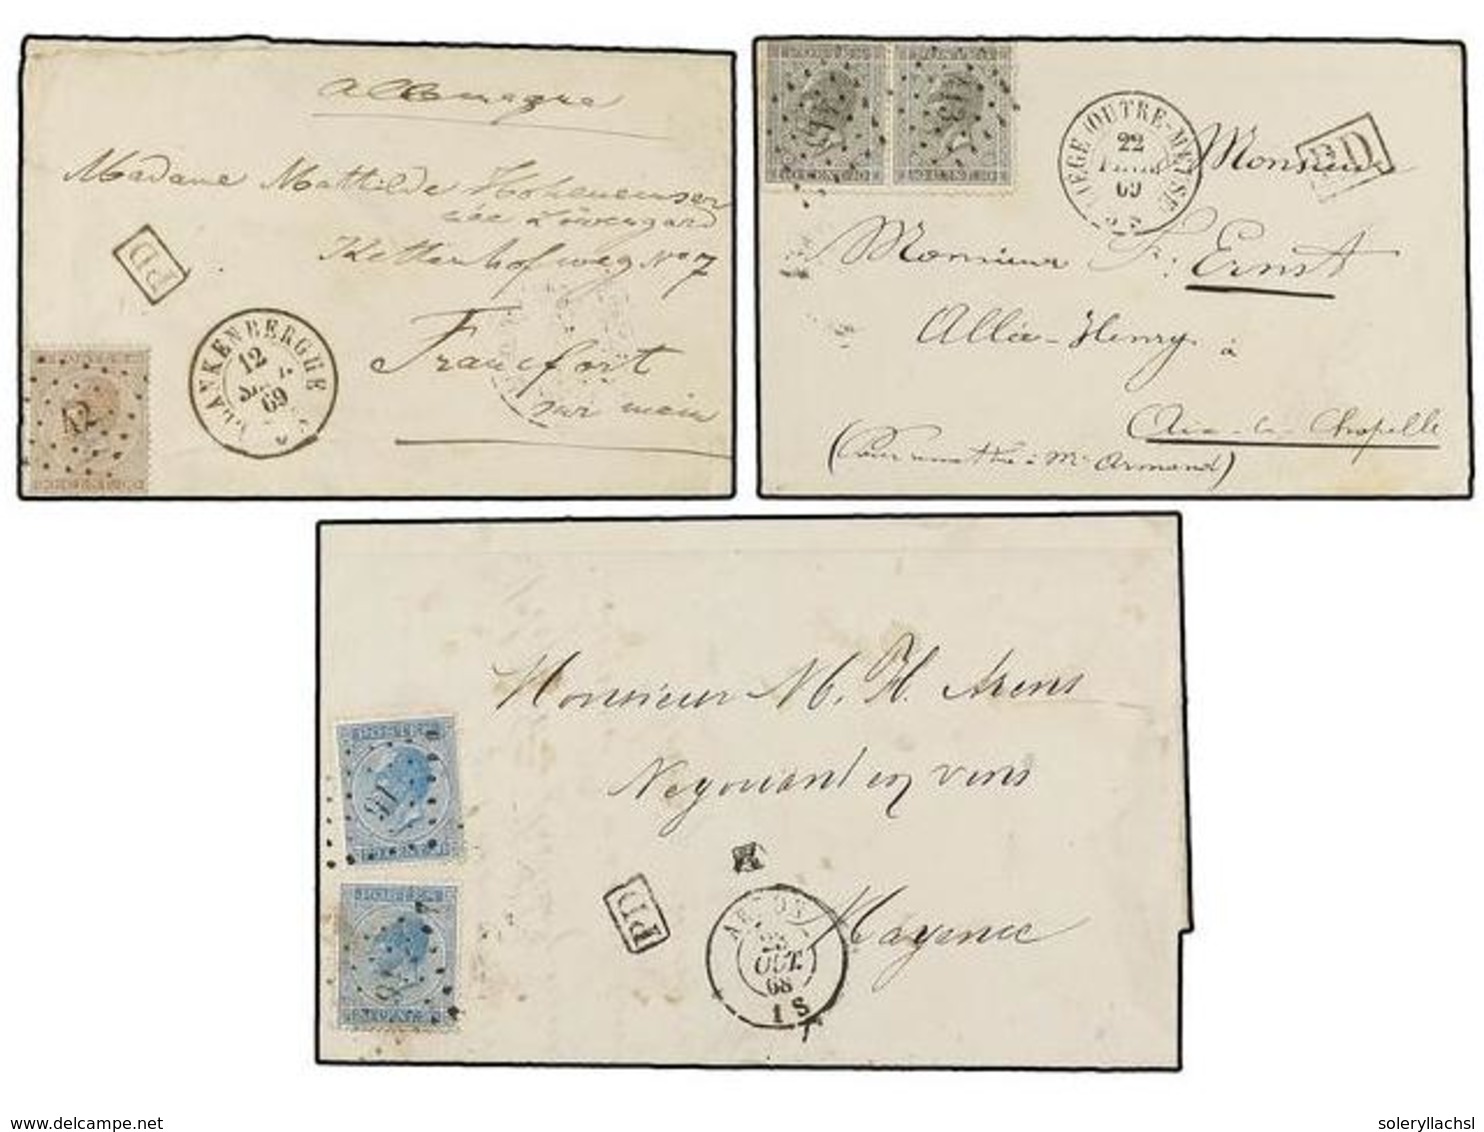 Allemagne
Madame Mathilde Hohenemser
née Löwengard
Kettenhofweg No 7
Francfort
sur mein
PD
BLANKENBERGHE
12
69
42
LIEGE (OUTRE-MEUSE)
22
69
PD
Monsieur
Monsieur Fr: Ernst
Allée-Henry à
Aix-la-Chapelle
(Pour remettre à Mr Armand)
POSTES
15
Monsieur M. H. Arens
Negociant en vins
Mayence
PD
ARLON
OCT.
68
1 S
delcampe.net
soleryllachsl